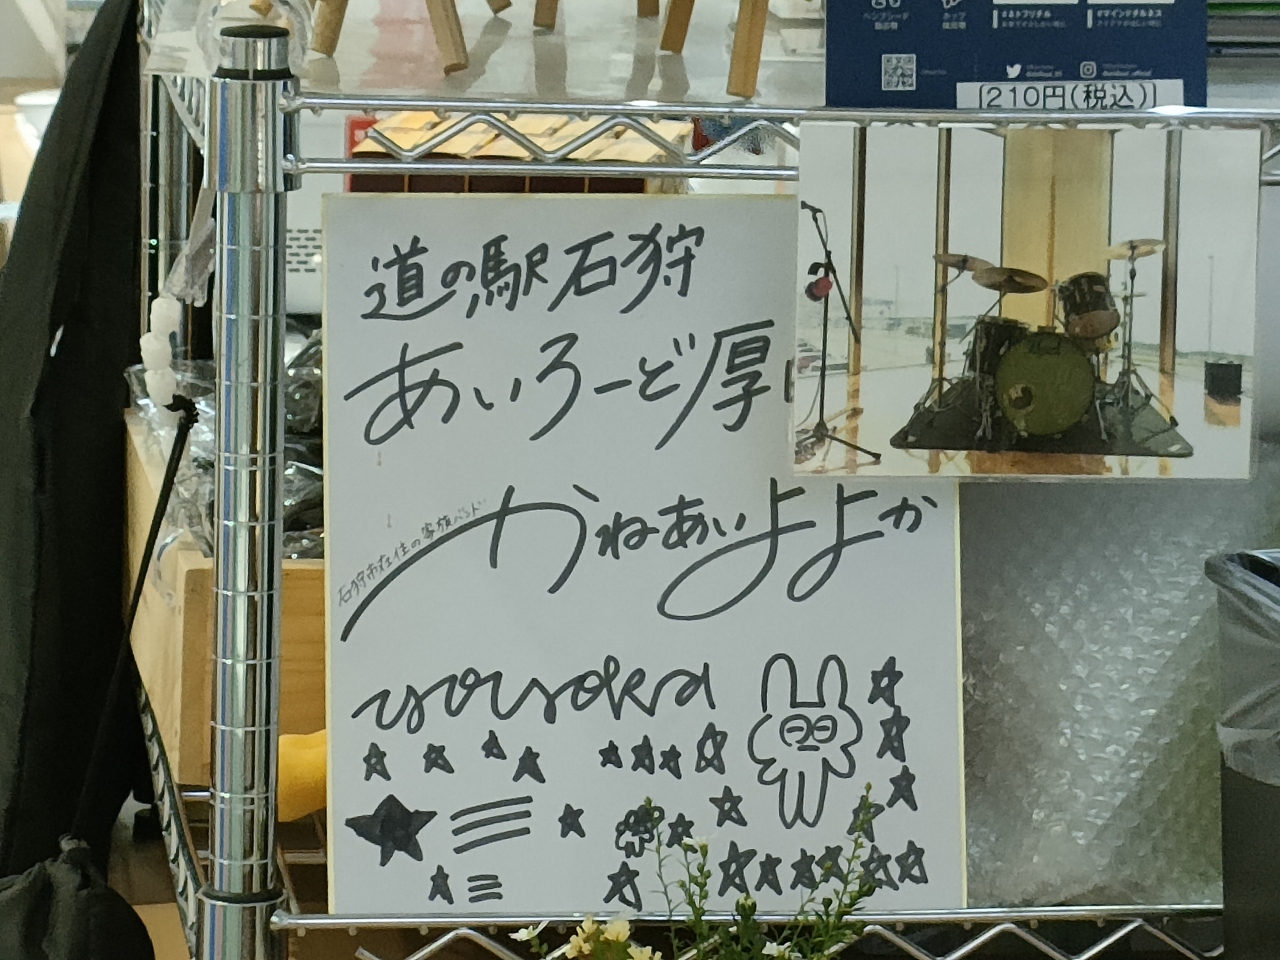 [210円(税込)]
道の駅石狩
あいろーど厚
石狩市在住の家族バンド
かねあいよよか
yoyoka